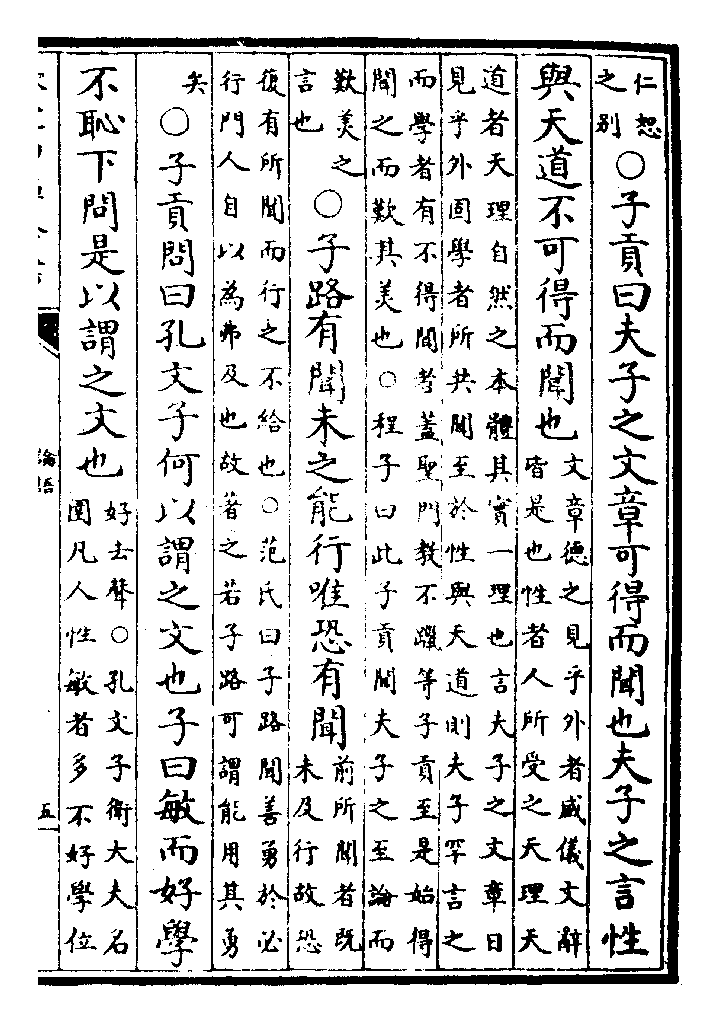 仁恕
之别
○子貢曰夫子之文章可得而聞也夫子之言性
與天道不可得而聞也
文章德之見乎外者威儀文辭
皆是也性者人所受之天理天
道者天理自然之本體其實一理也言夫子之文章日
見乎外固學者所共聞至於性與天道則夫子罕言之
而學者有不得聞者蓋聖門教不躐等子貢至是始得
聞之而歎其美也○程子曰此子貢聞夫子之至論而
歎美之
言也
○子路有聞未之能行唯恐有聞
前所聞者既
未及行故恐
復有所聞而行之不給也○范氏曰子路聞善勇於必
行門人自以為弗及也故著之若子路可謂能用其勇
矣
○子貢問曰孔文子何以謂之文也子曰敏而好學
不恥下問是以謂之文也
好去聲○孔文子衛大夫名
圉凡人性敏者多不好學位
論語
五